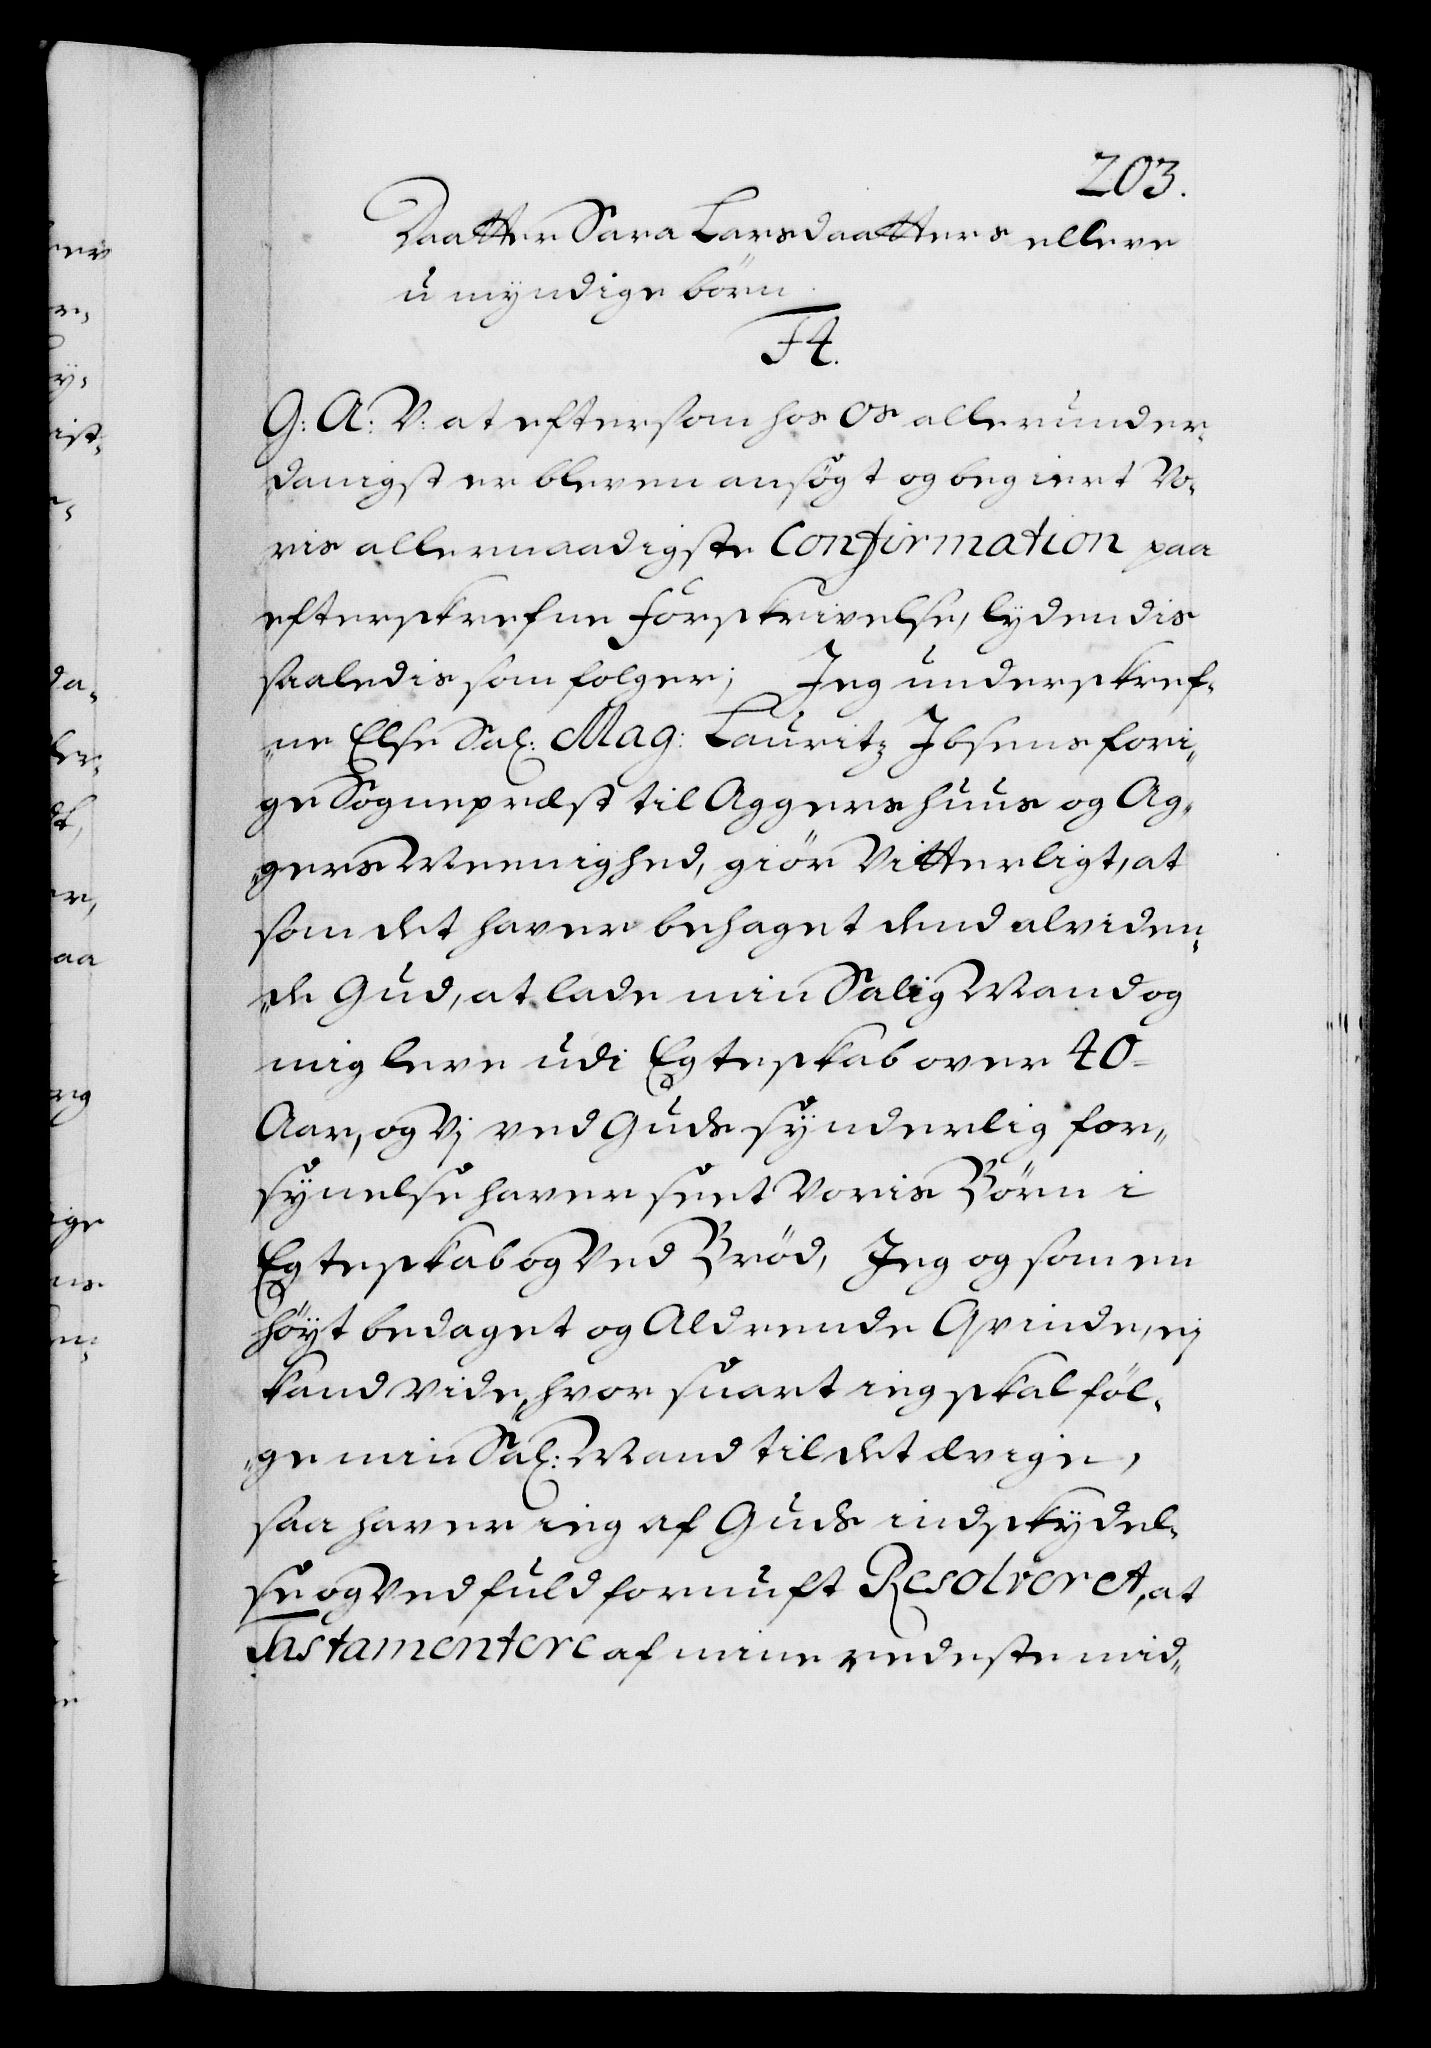 203.
Daatter Sara Larsdaatters elleve
u myndige börn.
F4.
G: A: V: at eftersom hos Os allerunder-
danigst er bleven ansögt og begiert Vo-
ris allernaadigste Confirmation paa
efterskrefne Forskrivelse, lydendis
saaledis som folger; Jeg underskref-
ne Else Sal: Mag: Lauritz Ibsens fori-
ge Sognepræst til Aggershuus og Ag-
gers Meenighed, giör Vitterligt, at
som det haver behaget dend alviden-
de Gud, at lade min Salig Mand og
mig leve udi Egteskab over 40
Aar, og Vj ved Guds synderlig for-
synelse haver seet Voris Börn i
Egteskab og Ved Bröd, Jeg og som en
höyt bedaget og Aldrende Qvinde, ej
kand vide, hvor snart ieg skal föl-
ge min Sal: Mand til det ævige,
saa haver ieg af Guds indskydel-
se og Ved fuld fornuft Resolveret, at
Tastamentere af mine redeste mid-